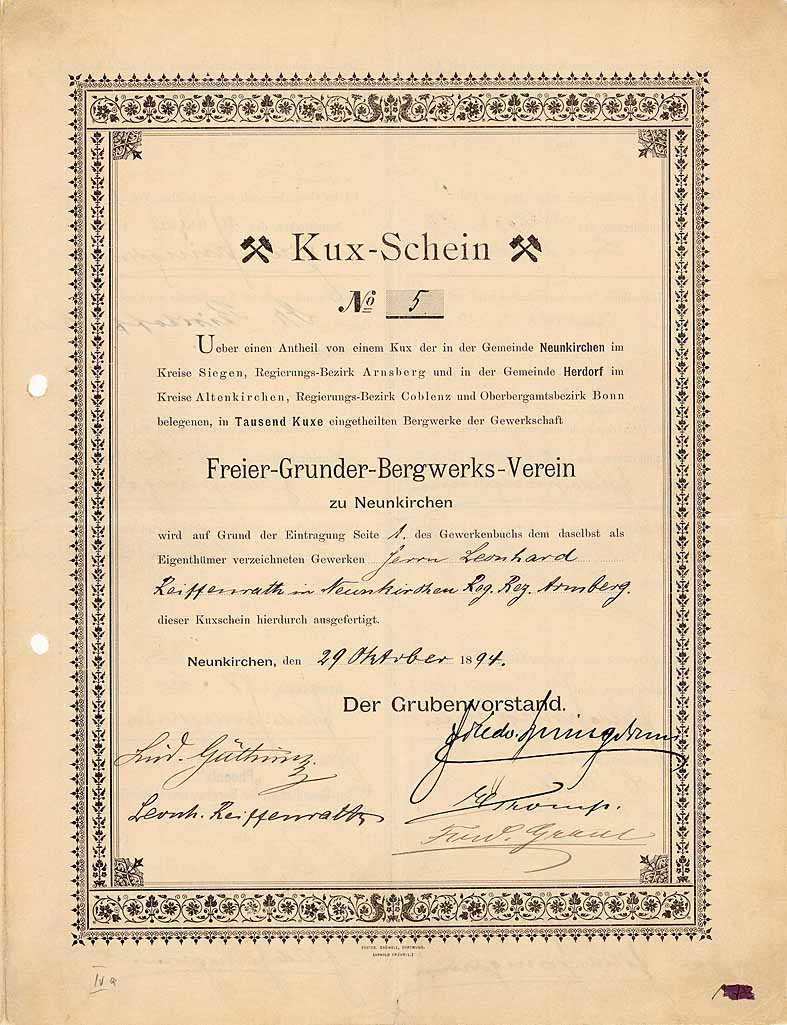 Kux-Schein
No 5.
Ueber einen Antheil von einem Kux der in der Gemeinde Neunkirchen im
Kreise Siegen, Regierungs-Bezirk Arnsberg und in der Gemeinde Herdorf im
Kreise Altenkirchen, Regierungs-Bezirk Coblenz und Oberbergamtsbezirk Bonn
belegenen, in Tausend Kuxe eingetheilten Bergwerke der Gewerkschaft
Freier-Grunder-Bergwerks-Verein
zu Neunkirchen
wird auf Grund der Eintragung Seite 1. des Gewerkenbuchs dem daselbst als
Eigenthümer verzeichneten Gewerken Herrn Leonhard
Reiffenrath in Neunkirchen Reg. Bez. Arnsberg.
dieser Kuxschein hierdurch ausgefertigt.
Neunkirchen, den 29 Oktober 1894.
Der Grubenvorstand.
Leonh. Reiffenrath
FRIEDR. CRÜWELL, DORTMUND.
(ARNOLD CRÜWELL.)
IVa